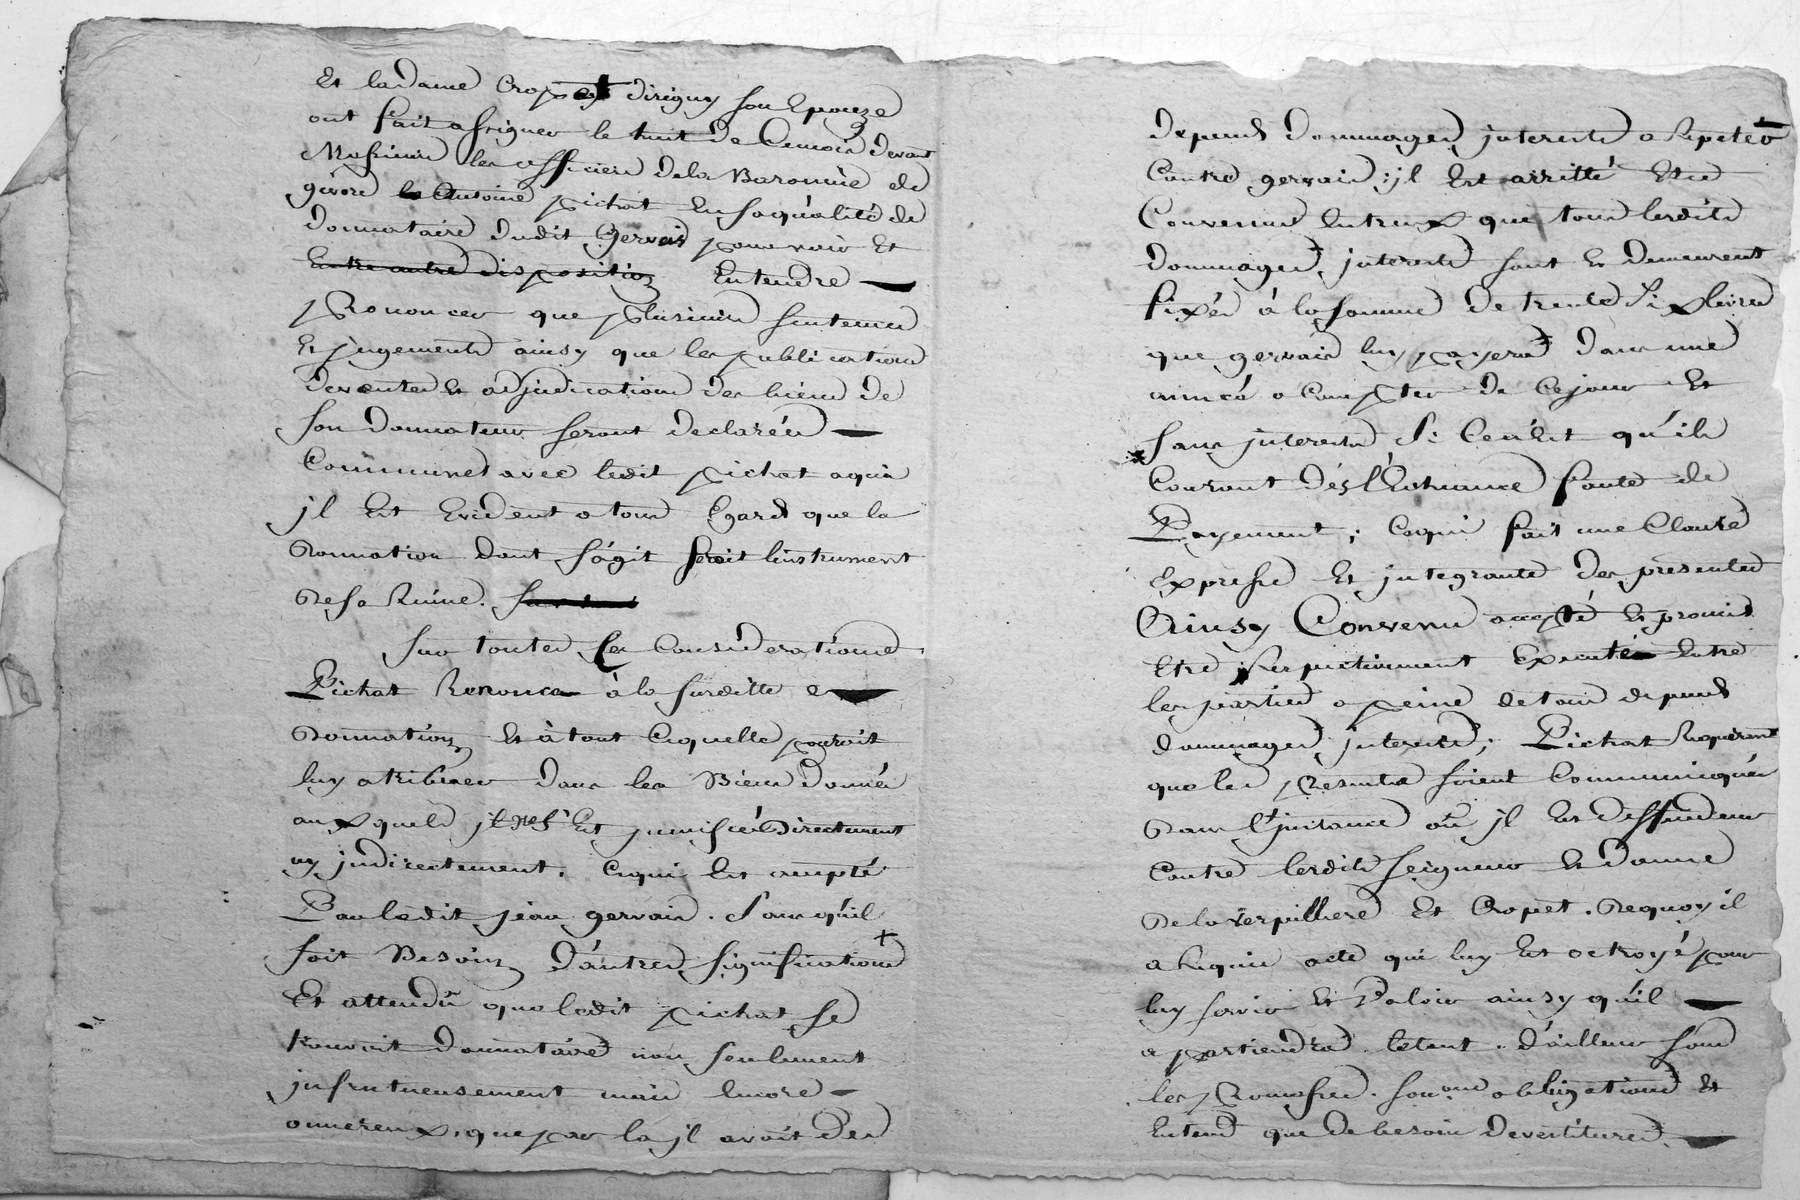 Et la dame Cropet dirigny son Epouze
ont fait assigner le huit de Cemois devant
Messieurs les officiers dela Baronnie de
givors Antoine pichat En saqualité de
Donnataire dudit Gervais pour voir Et
Entre autre disposition Entendre
prononcer que plusieurs sentences
Et jugements ainsy que les publications
des ventes Et adjudications des biens de
son Donnateur seront declarées
Communes avec ledit pichat aquoi
jl Est Evident a tous Egards que la
Donnation dont s'agit seroit linstrument
de sa Ruine.
Sur toutes ses Considerations
Pichat Renonce à la susditte
Donnation Et à tout Cequelle pouroit
luy atribuer dans les Biens donnés
auxquels jl nes'Est jmmiscé Directement
ny jndirectement. Cequi Est accepté
Par ledit jean gervais. Sans qu'il
soit Besoin D'autres significations
Et attendu que ledit pichat se
trouvoit donnataire non seulement
jnfrutueusement mais Encore
onnereux, que par la jl avoit des
depends dommages jnterests a Repeter
Contre gervais; jl Est arrêtté Et
Convenus Entreux que tous lesdits
dommages, jnterests sont Et demeurent
fixés à la somme De trente Six livres
que gervais luy payera dans une
année a Compter de Cejour Et
sans jnterests Si Cen'est qu'ils
Courent dès l'Echeance faute de
Payement; Cequi fait une Clause
Expresse Et jntegrante des presentes
Ainsy Convenu accepté Et promis
Etre Respectivement Executé Entre
les parties a peine de tous depends
dommages, jnterests; Pichat Requérant
que les presentes soient Communiquées
Dans l'jnstance où jl Est deffendeur
Contre lesdits seigneur Et dame
De la verpilliere Et Cropet. Dequoy il
a Requis acte qui luy Est octroyé pour
luy servir Et Valoir ainsy qu'il
apartiendra letout d'ailleurs sous
les promesses. soumons obligations Et
Entend que de besoin devestitures.